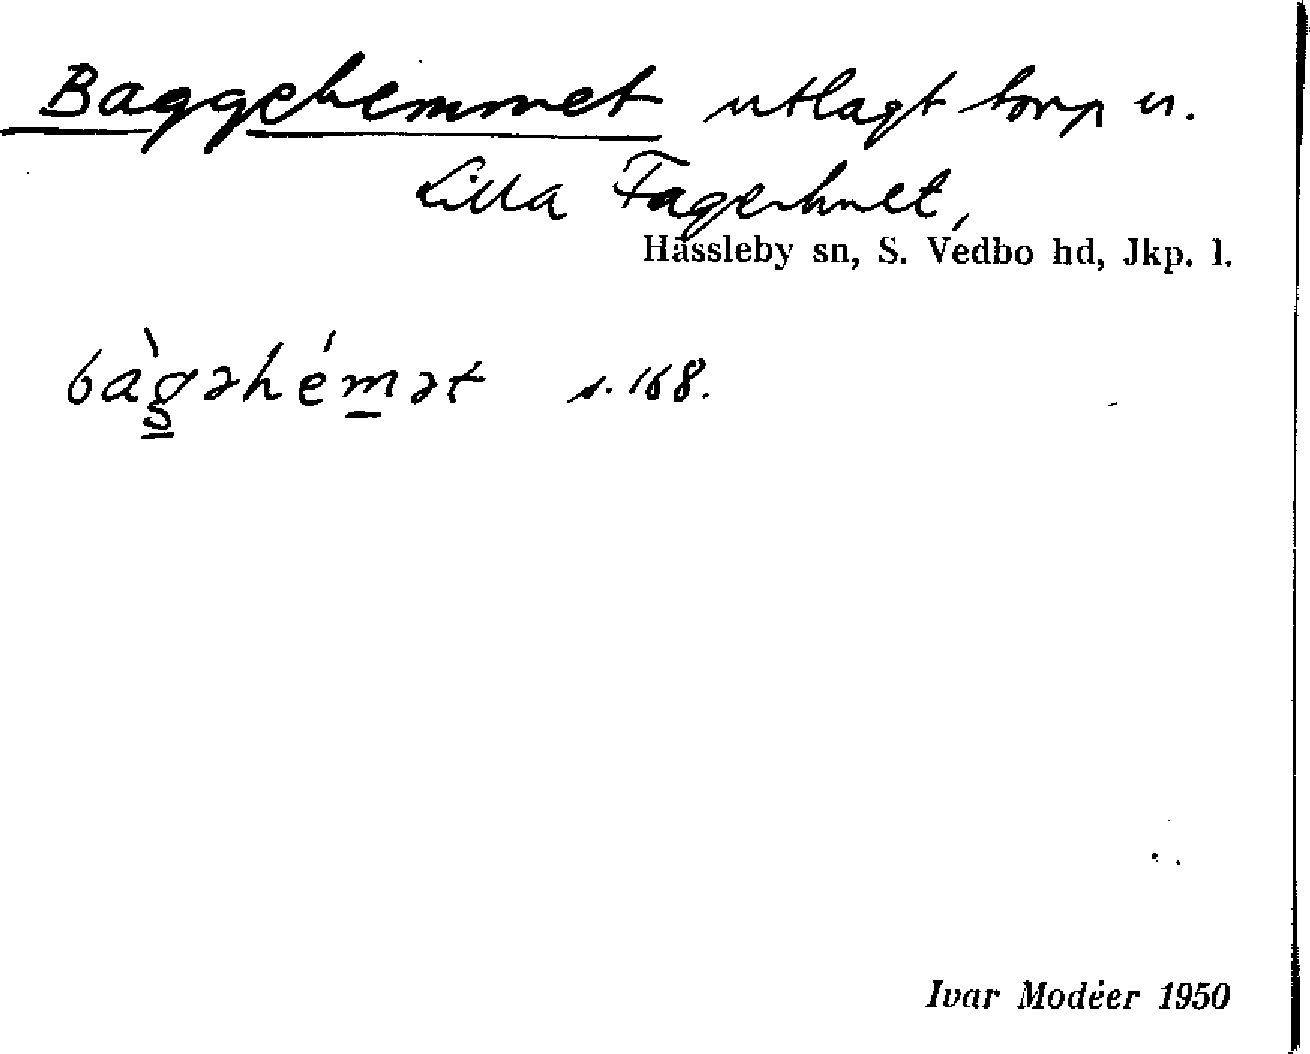 Baggehemmet utlagt torp u.
Lilla Fagerhult,
Hässleby sn, S. Vedbo hd, Jkp. l.
bàgəhémət s. 168.
Ivar Modéer 1950